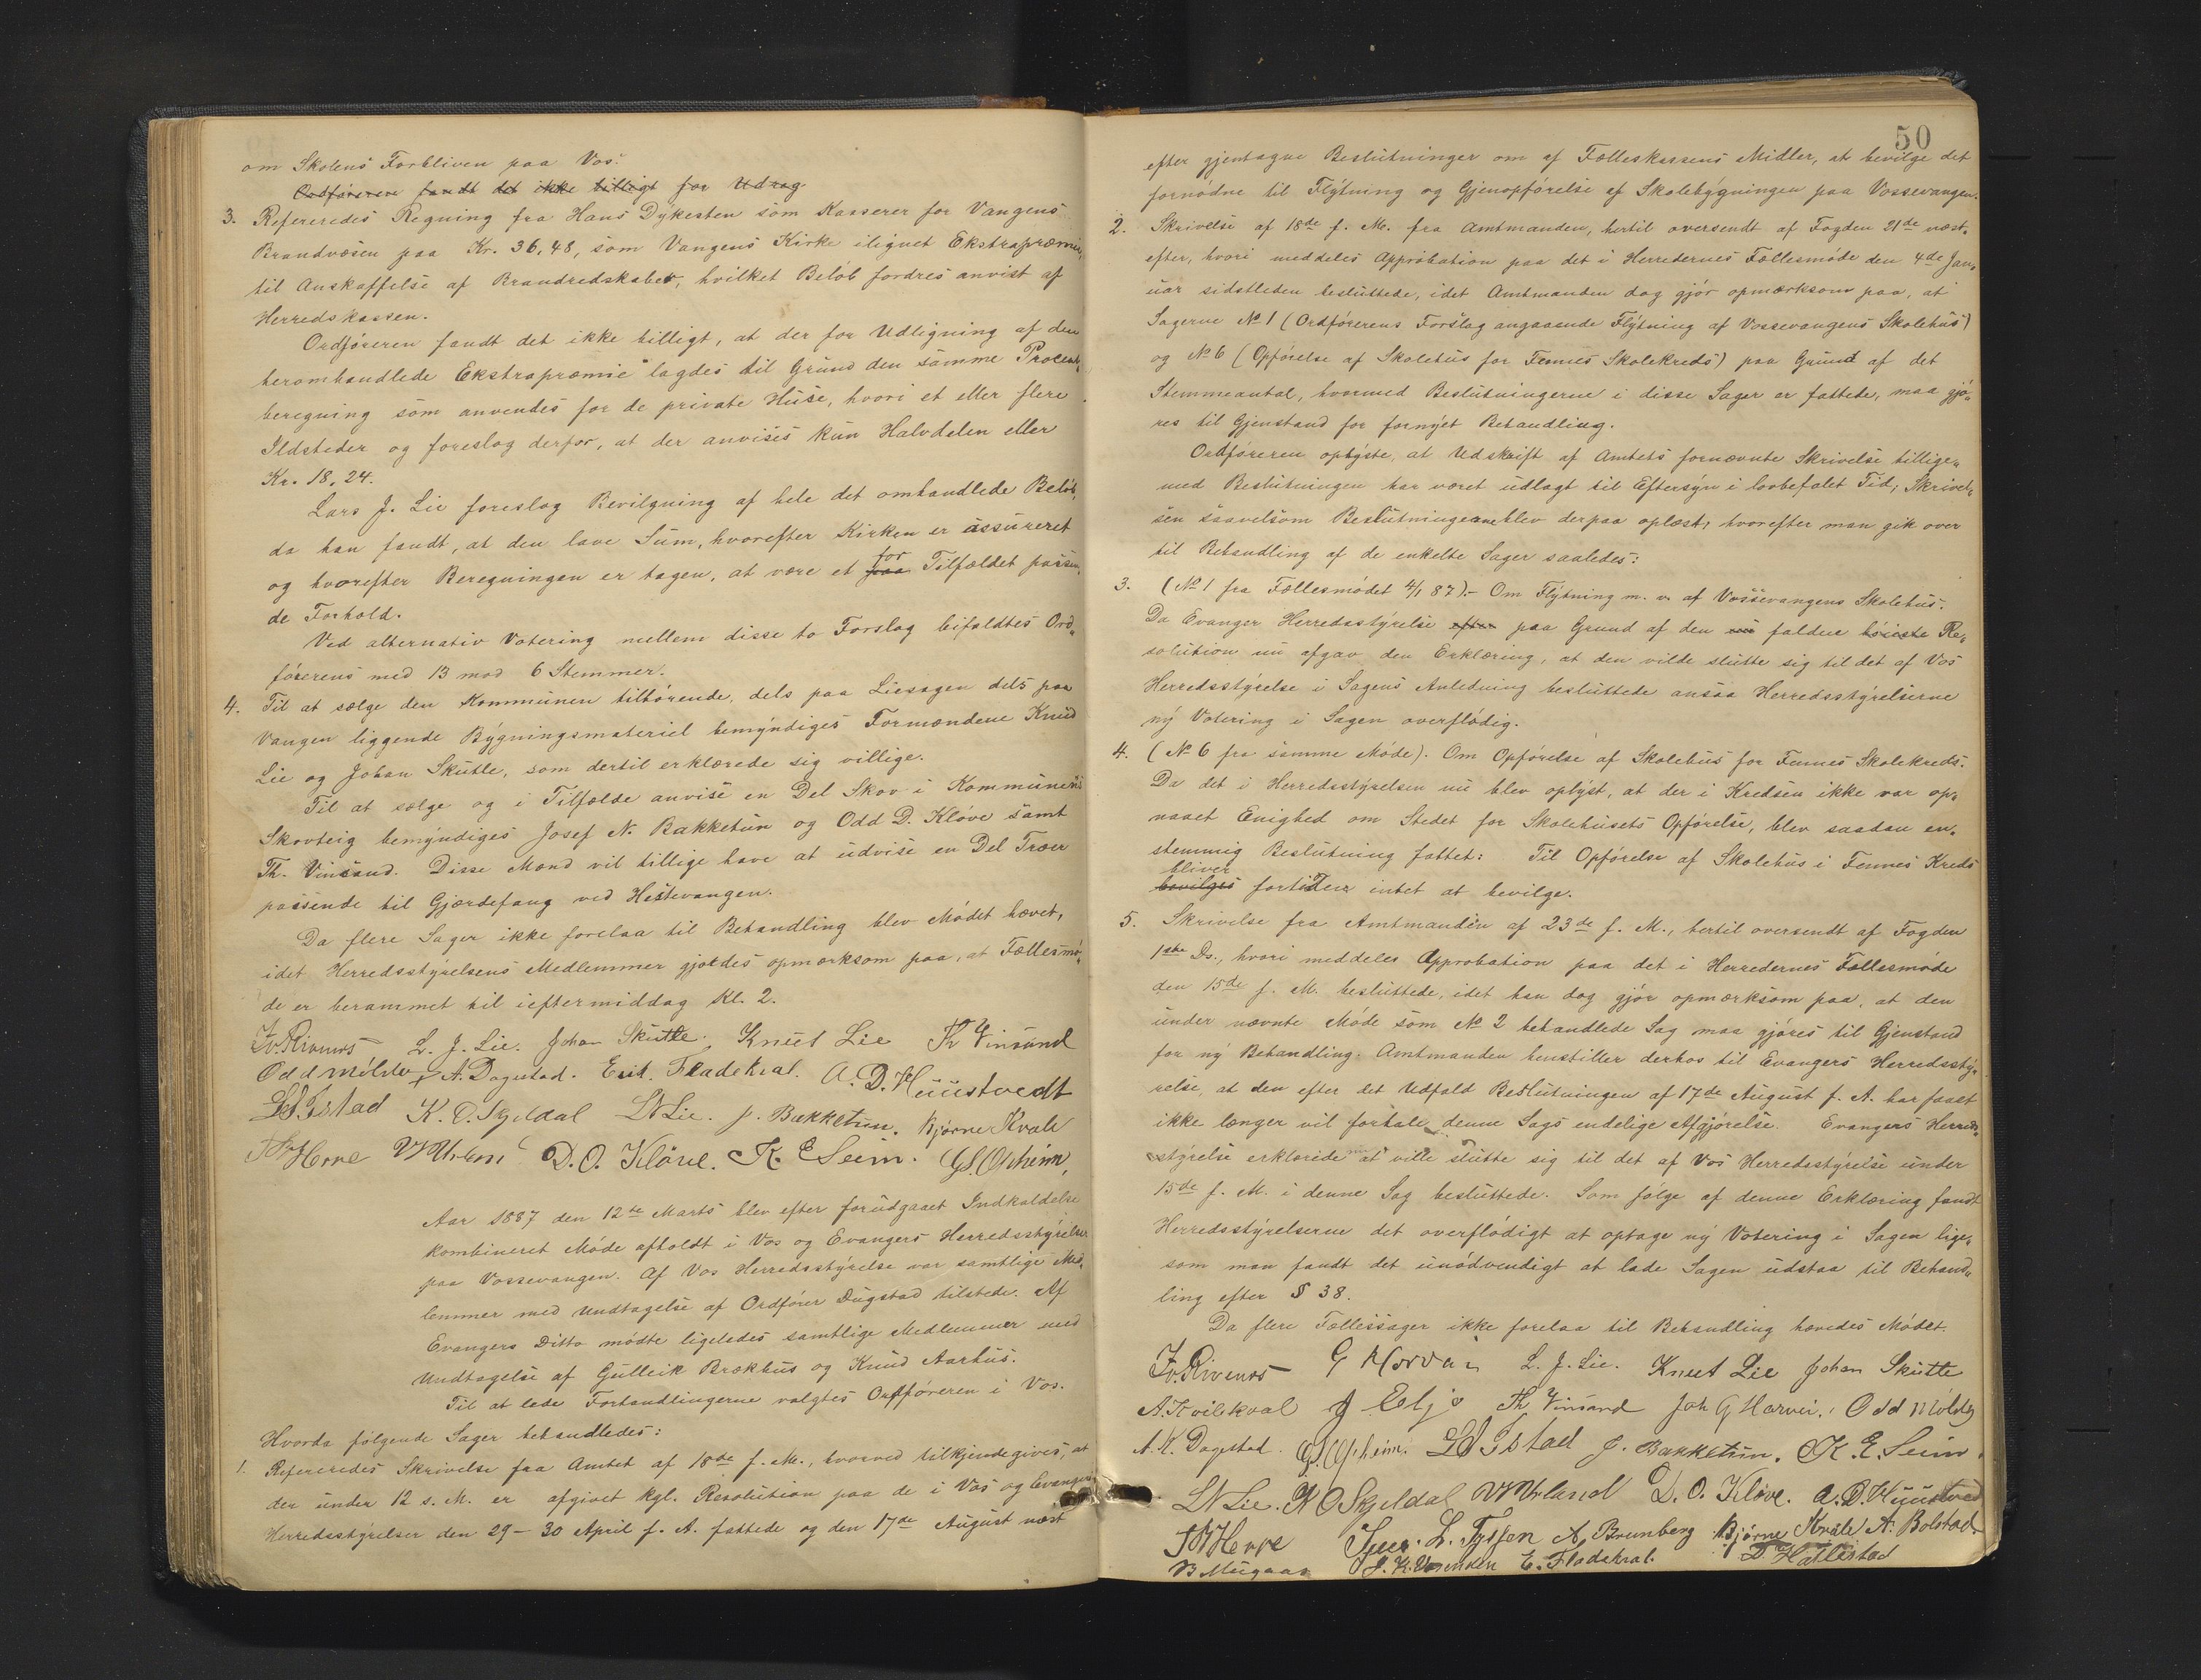 om Skolens Forbliven paa Vos.
Ordføreren fandt det ikke billigt for Udrag.
3. Refereredes Regning fra Hans Dykesten som Kasserer for Vangens
Brandvæsen paa Kr. 36,48, som Vangens Kirke ilignet Ekstrapræmie,
til Anskaffelse af Brandredskaber, hvilket Beløb fordres anvist af
Herredskassen.
Ordføreren fandt det ikke billigt, at der for Udligning af den
heromhandlede Ekstrapræmie lagdes til Grund den samme Procent-
beregning som anvendes for de private Huse, hvori et eller flere
Ildsteder og foreslog derfor, at der anvises kun Halvdelen eller
Kr. 18,24.
Lars J. Lie foreslog Bevilgning af hele det omhandlede Beløb,
da han fandt, at den lave Sum, hvorefter Kirken er assureret
og hvorefter Beregningen er tagen, at være et paa for Tilfældet passen-
de Forhold.
Ved alternativ Votering mellem disse to Forslag bifaldtes Ord-
førerens med 13 mod 6 Stemmer.
4. Til at sælge den Kommunen tilhørende, dels paa Liesagen dels paa
Vangen liggende Bygningsmateriel bemyndiges Formændene Knud
Lie og Johan Skutle, som dertil erklærede sig villige.
Til at sælge og i Tilfælde anvise en Del Skov i Kommunens
Skovteig bemyndiges Josef N. Bakketun og Odd D. Kløve samt
Th. Vinsand. Disse Mænd vil tillige have at udvise en Del Træer
passende til Gjærdefang ved Hestevangen.
Da flere Sager ikke forelaa til Behandling blev Mødet hævet,
idet Herredsstyrelsens Medlemmer gjordes opmærksom paa, at Fællesmø-
de er berammet til ieftermiddag Kl. 2.
Iv. Rivenes L. J. Lie. Johan Skutle. Knut Lie Th Vinsand
Odd Mölster A. Dagestad. Erik Fladekval. A. D. Huustvedt
Istad K. O. Skjeldal LN Lie. J. Bakketun. Bjørne Kvale
Herre Urland D. O. Klöve. K. E Seim. G S. Opheim,
Aar 1887 den 12te Marts blev efter forudgaaet Indkaldelse
kombineret Møde afholdt i Vos og Evangers Herredsstyrelser
paa Vossevangen. Af Vos Herredsstyrelse var samtlige Med-
lemmer med Undtagelse af Ordfører Dugstad tilstede. Af
Evangers Ditto mødte ligeledes samtlige Medlemmer med
Undtagelse af Gulleik Brækhus og Knud Aarhus.
Til at lede Forhandlingerne valgtes Ordføreren i Vos.
Hvorda følgende Sager behandledes:
1. Refereredes Skrivelse fra Amtet af 18de f. M., hvorved tilkjendegives, at
der under 12 s. M. er afgivet kgl. Resolution paa de i Vos og Evangers
Herredsstyrelser den 29-30 April f. A. fattede og den 17de August næst
50
efter gjentagne Beslutninger om af Fælleskassens Midler, at bevilge det
fornødne til Flytning og Gjenopførelse af Skolebygningen paa Vossevangen.
2. Skrivelse af 18de f. M. fra Amtmanden, hertil oversendt af Fogden 21de næst-
efter, hvori meddeles Approbation paa det i Herredernes Fællesmøde den 4de Jan-
uar sidstleden besluttede, idet Amtmanden dog gjør opmærksom paa, at
Sagerne No 1 (Ordførerens Forslag angaaende Flytning af Vossevangens Skolehus)
og No 6 (Opførelse af Skolehus for Fennes Skolekreds) paa Grund af det
Stemmeantal, hvormed Beslutningerne i disse Sager er fattede, maa gjø-
res til Gjenstand for fornyet Behandling.
Ordføreren oplyste, at Udskrift af Amtets fornævnte Skrivelse tillige-
med Beslutningen har været udlagt til Eftersyn i lovbefalet Tid; Skrivel-
sen saavelsom Beslutningerne blev derpaa oplæst, hvorefter man gik over
til Behandling af de enkelte Sager saaledes:
3. (No 1 fra Fællesmødet 4/1 87).- Om Flytning m. v. af Vossevangens Skolehus.
Da Evanger Herredsstyrelse efter paa Grund af den nu faldne høieste Re-
solution nu afgav den Erklæring, at den vilde slutte sig til det af Vos
Herredsstyrelse i Sagens Anledning besluttede ansaa Herredsstyrelserne
ny Votering i Sagen overflødig.
4. (No 6 fra samme Møde). Om Opførelse af Skolehus for Fennes Skolekreds.
Da det i Herredsstyrelsen nu blev oplyst, at der i Kredsen ikke var op-
naaet Enighed om Stedet for Skolehusets Opførelse, blev saadan en-
stemmig Beslutning fattet: Til Opførelse af Skolehus i Fennes Kreds
bliver
bevilges fortiden intet at bevilge.
5. Skrivelse fra Amtmanden af 23de f. M., hertil oversendt af Fogden
1ste Ds., hvori meddeles Approbation paa det i Herredernes Fællesmøde
den 15de f. M. besluttede, idet han dog gjør opmærksom paa, at den
under nævnte Møde som No 2 behandlede Sag maa gjøres til Gjenstand
for ny Behandling. Amtmanden henstiller derhos til Evangers Herredssty-
relse, at den efter det Udfald Beslutningen af 17de August f. A. har faaet
ikke længer vil forhale denne Sags endelige Afgjørelse. Evangers Herreds-
styrelse erklærede at ville slutte sig til det af Vos Herredsstyrelse under
15de f. M. i denne Sag besluttede. Som følge af denne Erklæring fandt
Herredsstyrelserne det overflødigt at optage ny Votering i Sagen lige-
som man fandt det unødvendigt at lade Sagen udstaa til Behand-
ling efter § 38.
Da flere Fællessager ikke forelaa til Behandling hævedes Mødet.
Iv. Rivenes G Horvei L. J. Lie. Knut Lie Johan Skutle
A. Kvilekval J Eljo Th Vinsand Joh G Horvei. Odd Mölster
A. K. Dagestad. G. S. Opheim. Istad J. Bakketun. K. E. Seim.
LN Lie. K O Skjeldal Urland D. O. Klöve. A. D. Huustved
Herre L. Tyssen A. Brunberg Bjørne Kvåle A. Bolstad
B Mugaas E. Fladekval. D. Hallestad